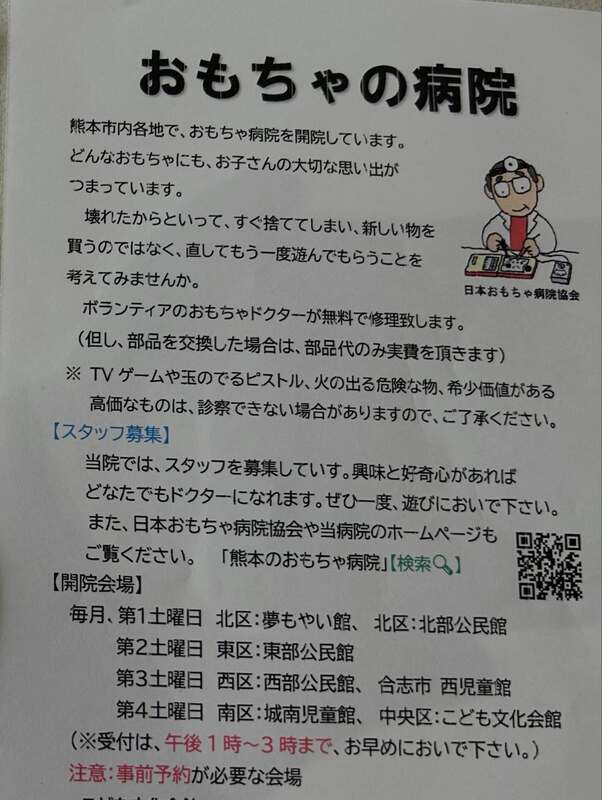 おもちゃの病院
熊本市内各地で、おもちゃ病院を開院しています。
どんなおもちゃにも、お子さんの大切な思い出が
つまっています。
壊れたからといって、すぐ捨ててしまい、新しい物を
買うのではなく、直してもう一度遊んでもらうことを
考えてみませんか。
日本おもちゃ病院協会
ボランティアのおもちゃドクターが無料で修理致します。
(但し、部品を交換した場合は、部品代のみ実費を頂きます)
※ TVゲームや玉のでるピストル、火の出る危険な物、希少価値がある
高価なものは、診察できない場合がありますので、ご了承ください。
【スタッフ募集】
当院では、スタッフを募集していす。興味と好奇心があれば
どなたでもドクターになれます。ぜひ一度、遊びにおいで下さい。
また、日本おもちゃ病院協会や当病院のホームページも
ご覧ください。 「熊本のおもちゃ病院」【検索🔍】
【開院会場】
毎月、第1土曜日 北区:夢もやい館、 北区:北部公民館
第2土曜日 東区:東部公民館
第3土曜日 西区:西部公民館、 合志市 西児童館
第4土曜日 南区:城南児童館、 中央区:こども文化会館
(※受付は、午後1時～3時まで、お早めにおいで下さい。)
注意:事前予約が必要な会場